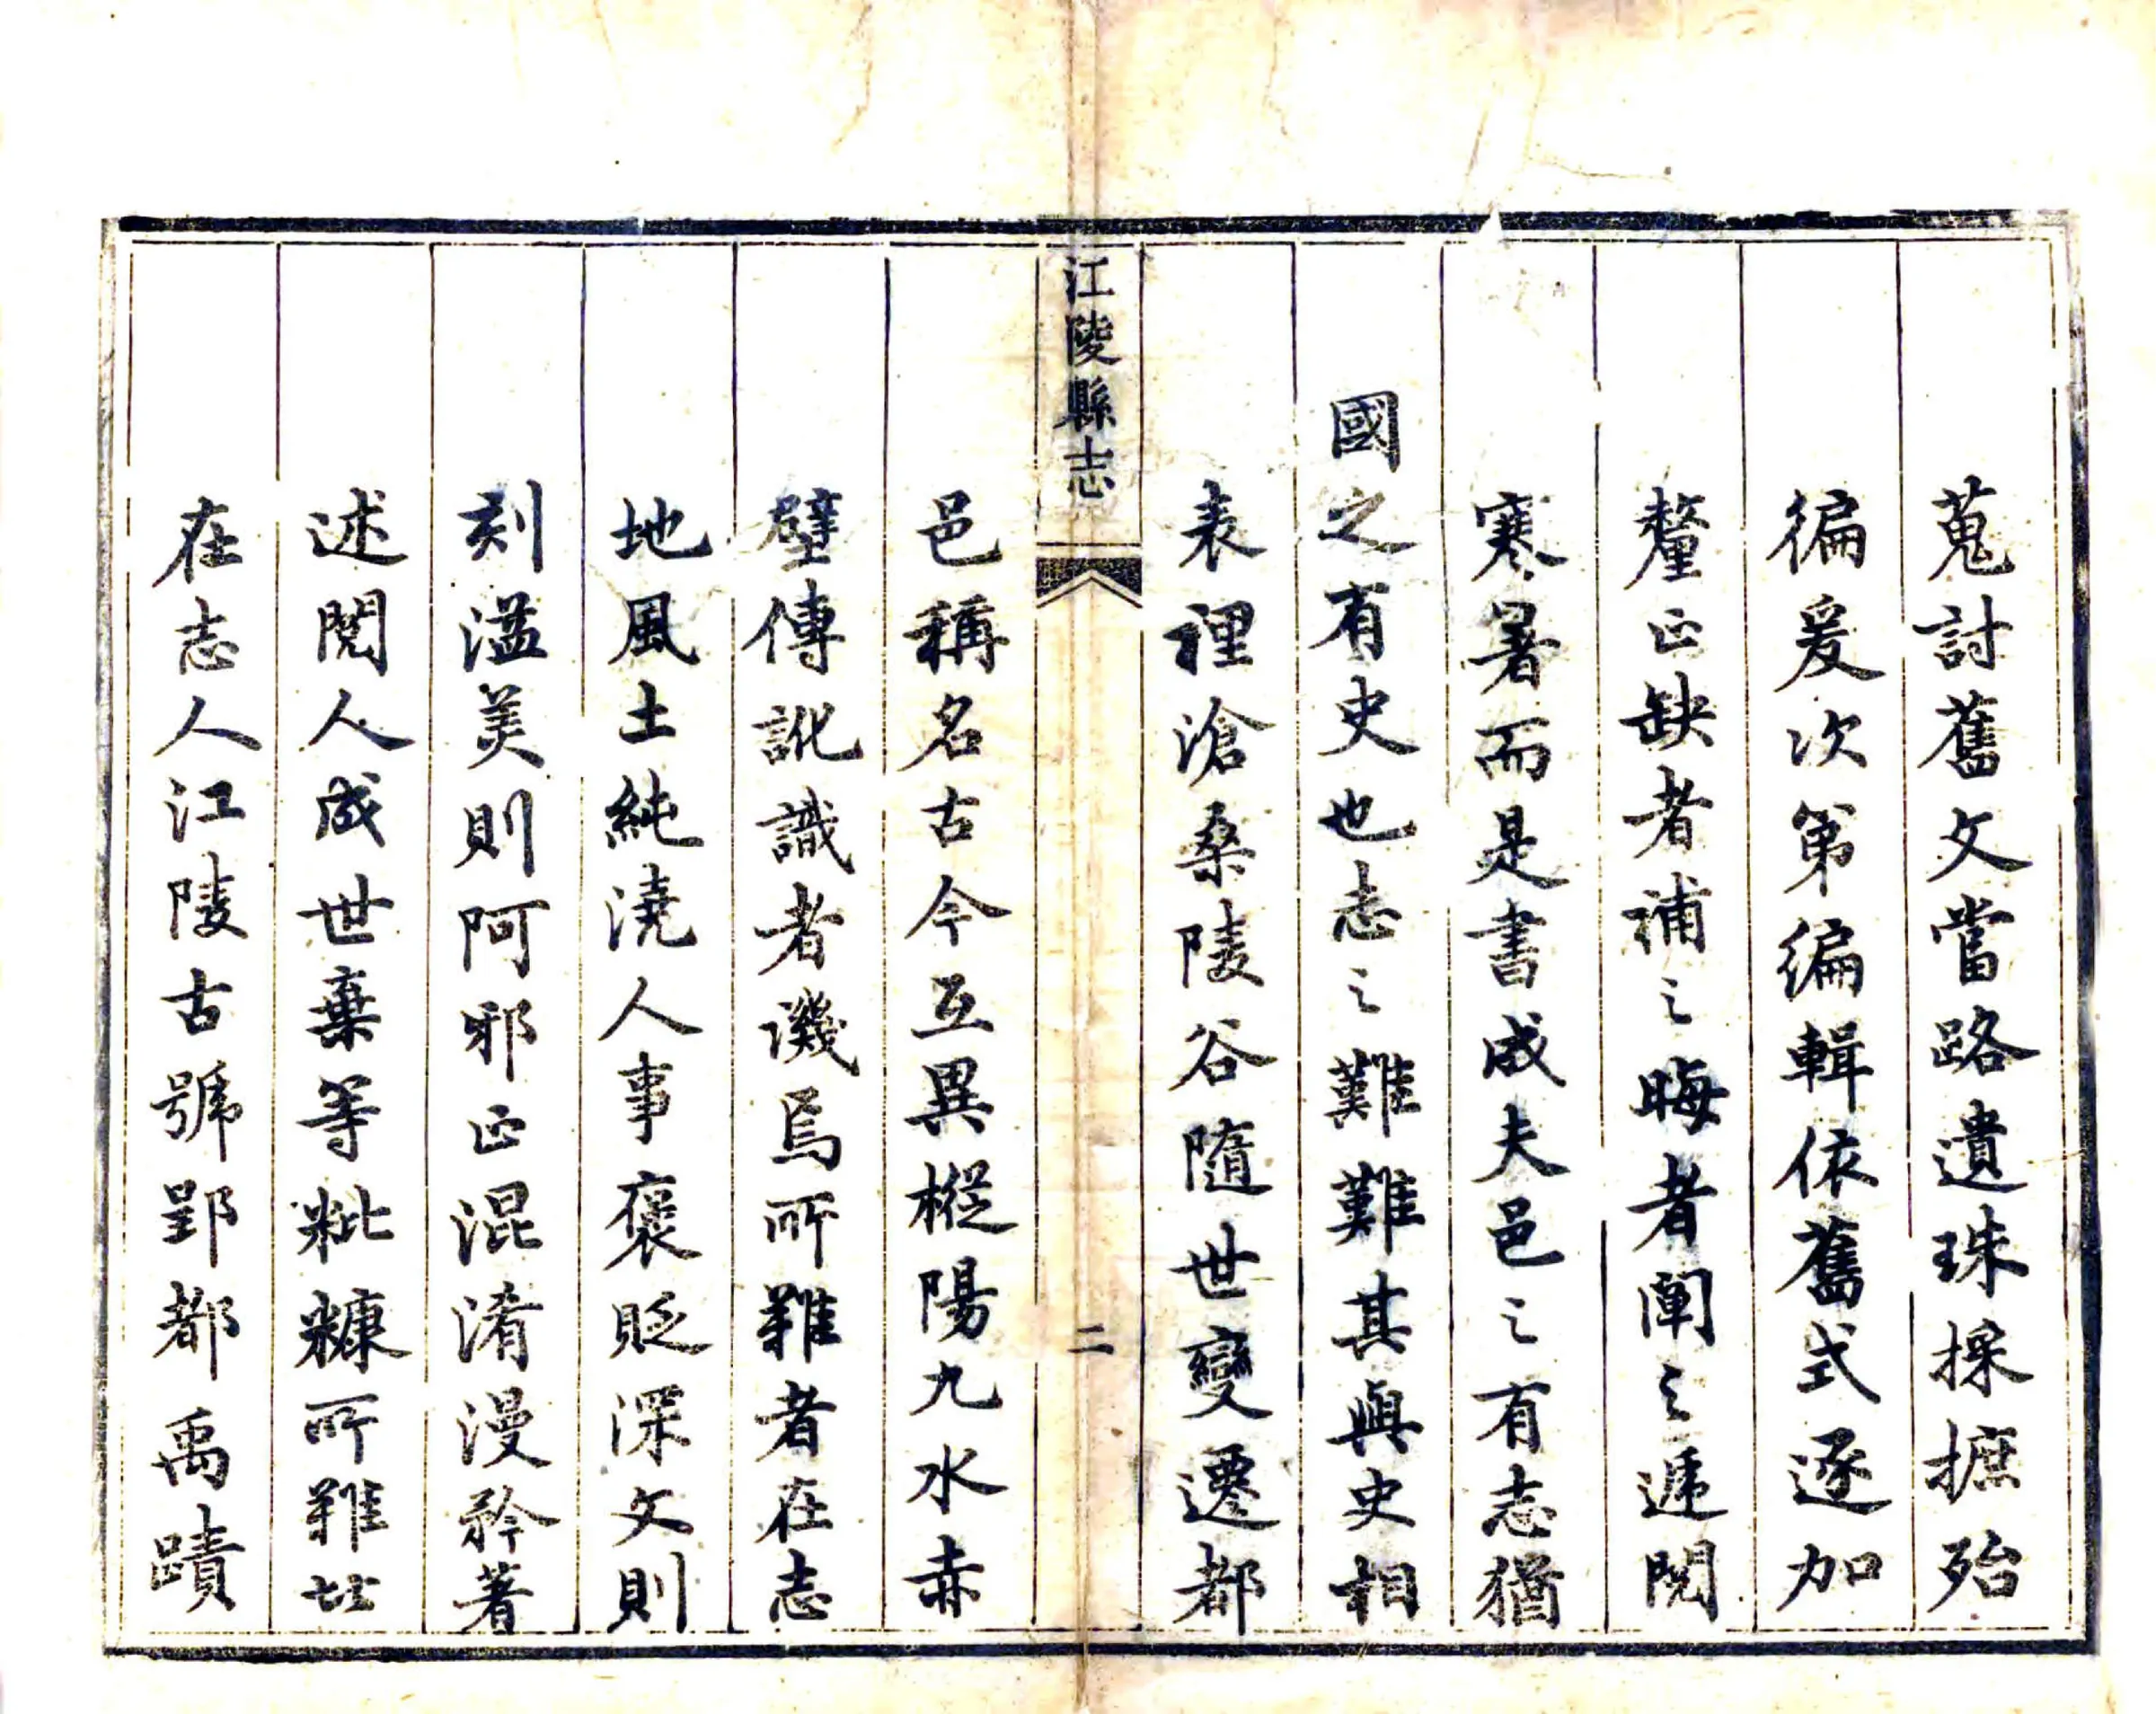 蒐討舊文當路遺珠採摭殆
徧爰次第編輯依舊式逐加
釐正缺者補之晦者闡之遞閱
寒暑而是書成夫邑之有志猶
國之有史也志之難難其與史相
表裡滄桑陵谷隨世變遷都
江陵縣志
二
邑稱名古今互異樅陽九水赤
壁傳訛識者譏焉所難者在志
地風土純澆人事褒貶深文則
刻溢美則阿邪正混淆漫矜著
述閱人成世棄等粃糠所難
在志人江陵古號郢都禹蹟